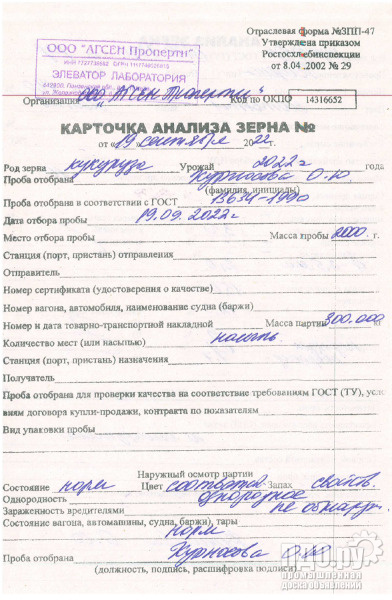 Отраслевая форма №ЗПП-47
Утверждена приказом
Росгосхлебинспекции
от 8.04 .2002 № 29
ООО "АГСЕН Проперти"
ЭЛЕВАТОР ЛАБОРАТОРИЯ
Организация ООО "АГСЕН Проперти" Код по ОКПО 14316652
КАРТОЧКА АНАЛИЗА ЗЕРНА №
от «19» сентября 2022г.
Род зерна кукуруза Урожай 2022г года
Проба отобрана Курносова О.Ю
(фамилия, инициалы)
Проба отобрана в соответствии с ГОСТ 13634-1990
Дата отбора пробы 19.09.2022г.
Место отбора пробы Масса пробы 2000 г.
Станция (порт, пристань) отправления
Отправитель
Номер сертификата (удостоверения о качестве)
Номер вагона, автомобиля, наименование судна (баржи)
Номер и дата товарно-транспортной накладной Масса партии 300.000 кг
Количество мест (или насыпью) насыпь
Станция (порт, пристань) назначения
Получатель
Проба отобрана для проверки качества на соответствие требованиям ГОСТ (ТУ), усло
виям договора купли-продажи, контракта по показателям
Вид упаковки пробы
Наружный осмотр партии
Состояние норм Цвет соответств Запах свойств.
Однородность однородное
Зараженность вредителями не обнаруж.
Состояние вагона, автомашины, судна, баржи), тары
норм
Проба отобрана Курносова О.Ю
(должность, подпись, расшифровка подписи)
промышленная
доска объявлений